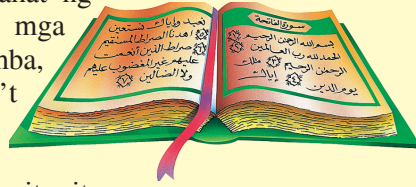 mga
mba,
't
سورة الفاتحة
بسم الله الرحمن الرحيم
الحمد لله رب العالمين
الرحمن الرحيم ملك
يوم الدين إياك
نعبد وإياك نستعين
اهدنا الصراط المستقيم
صراط الذين أنعمت
عليهم غير المغضوب عليهم
ولا الضالين